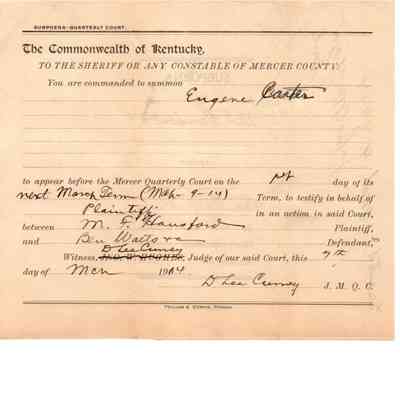 SUBPOENA—QUARTERLY COURT.
The Commonwealth of Kentucky,
TO THE SHERIFF OR ANY CONSTABLE OF MERCER COUNTY:
You are commanded to summon
Eugene Carter
to appear before the Mercer Quarterly Court on the 1st day of its
next March Term (Mch 9-14) Term, to testify in behalf of
Plaintiff in an action in said Court,
between M. F. Hansford Plaintiff,
and Ben Watts Defendant,
D Lee Curry
Witness, Judge of our said Court, this 7th
day of Mch 1914
D Lee Curry J. M. Q. C.